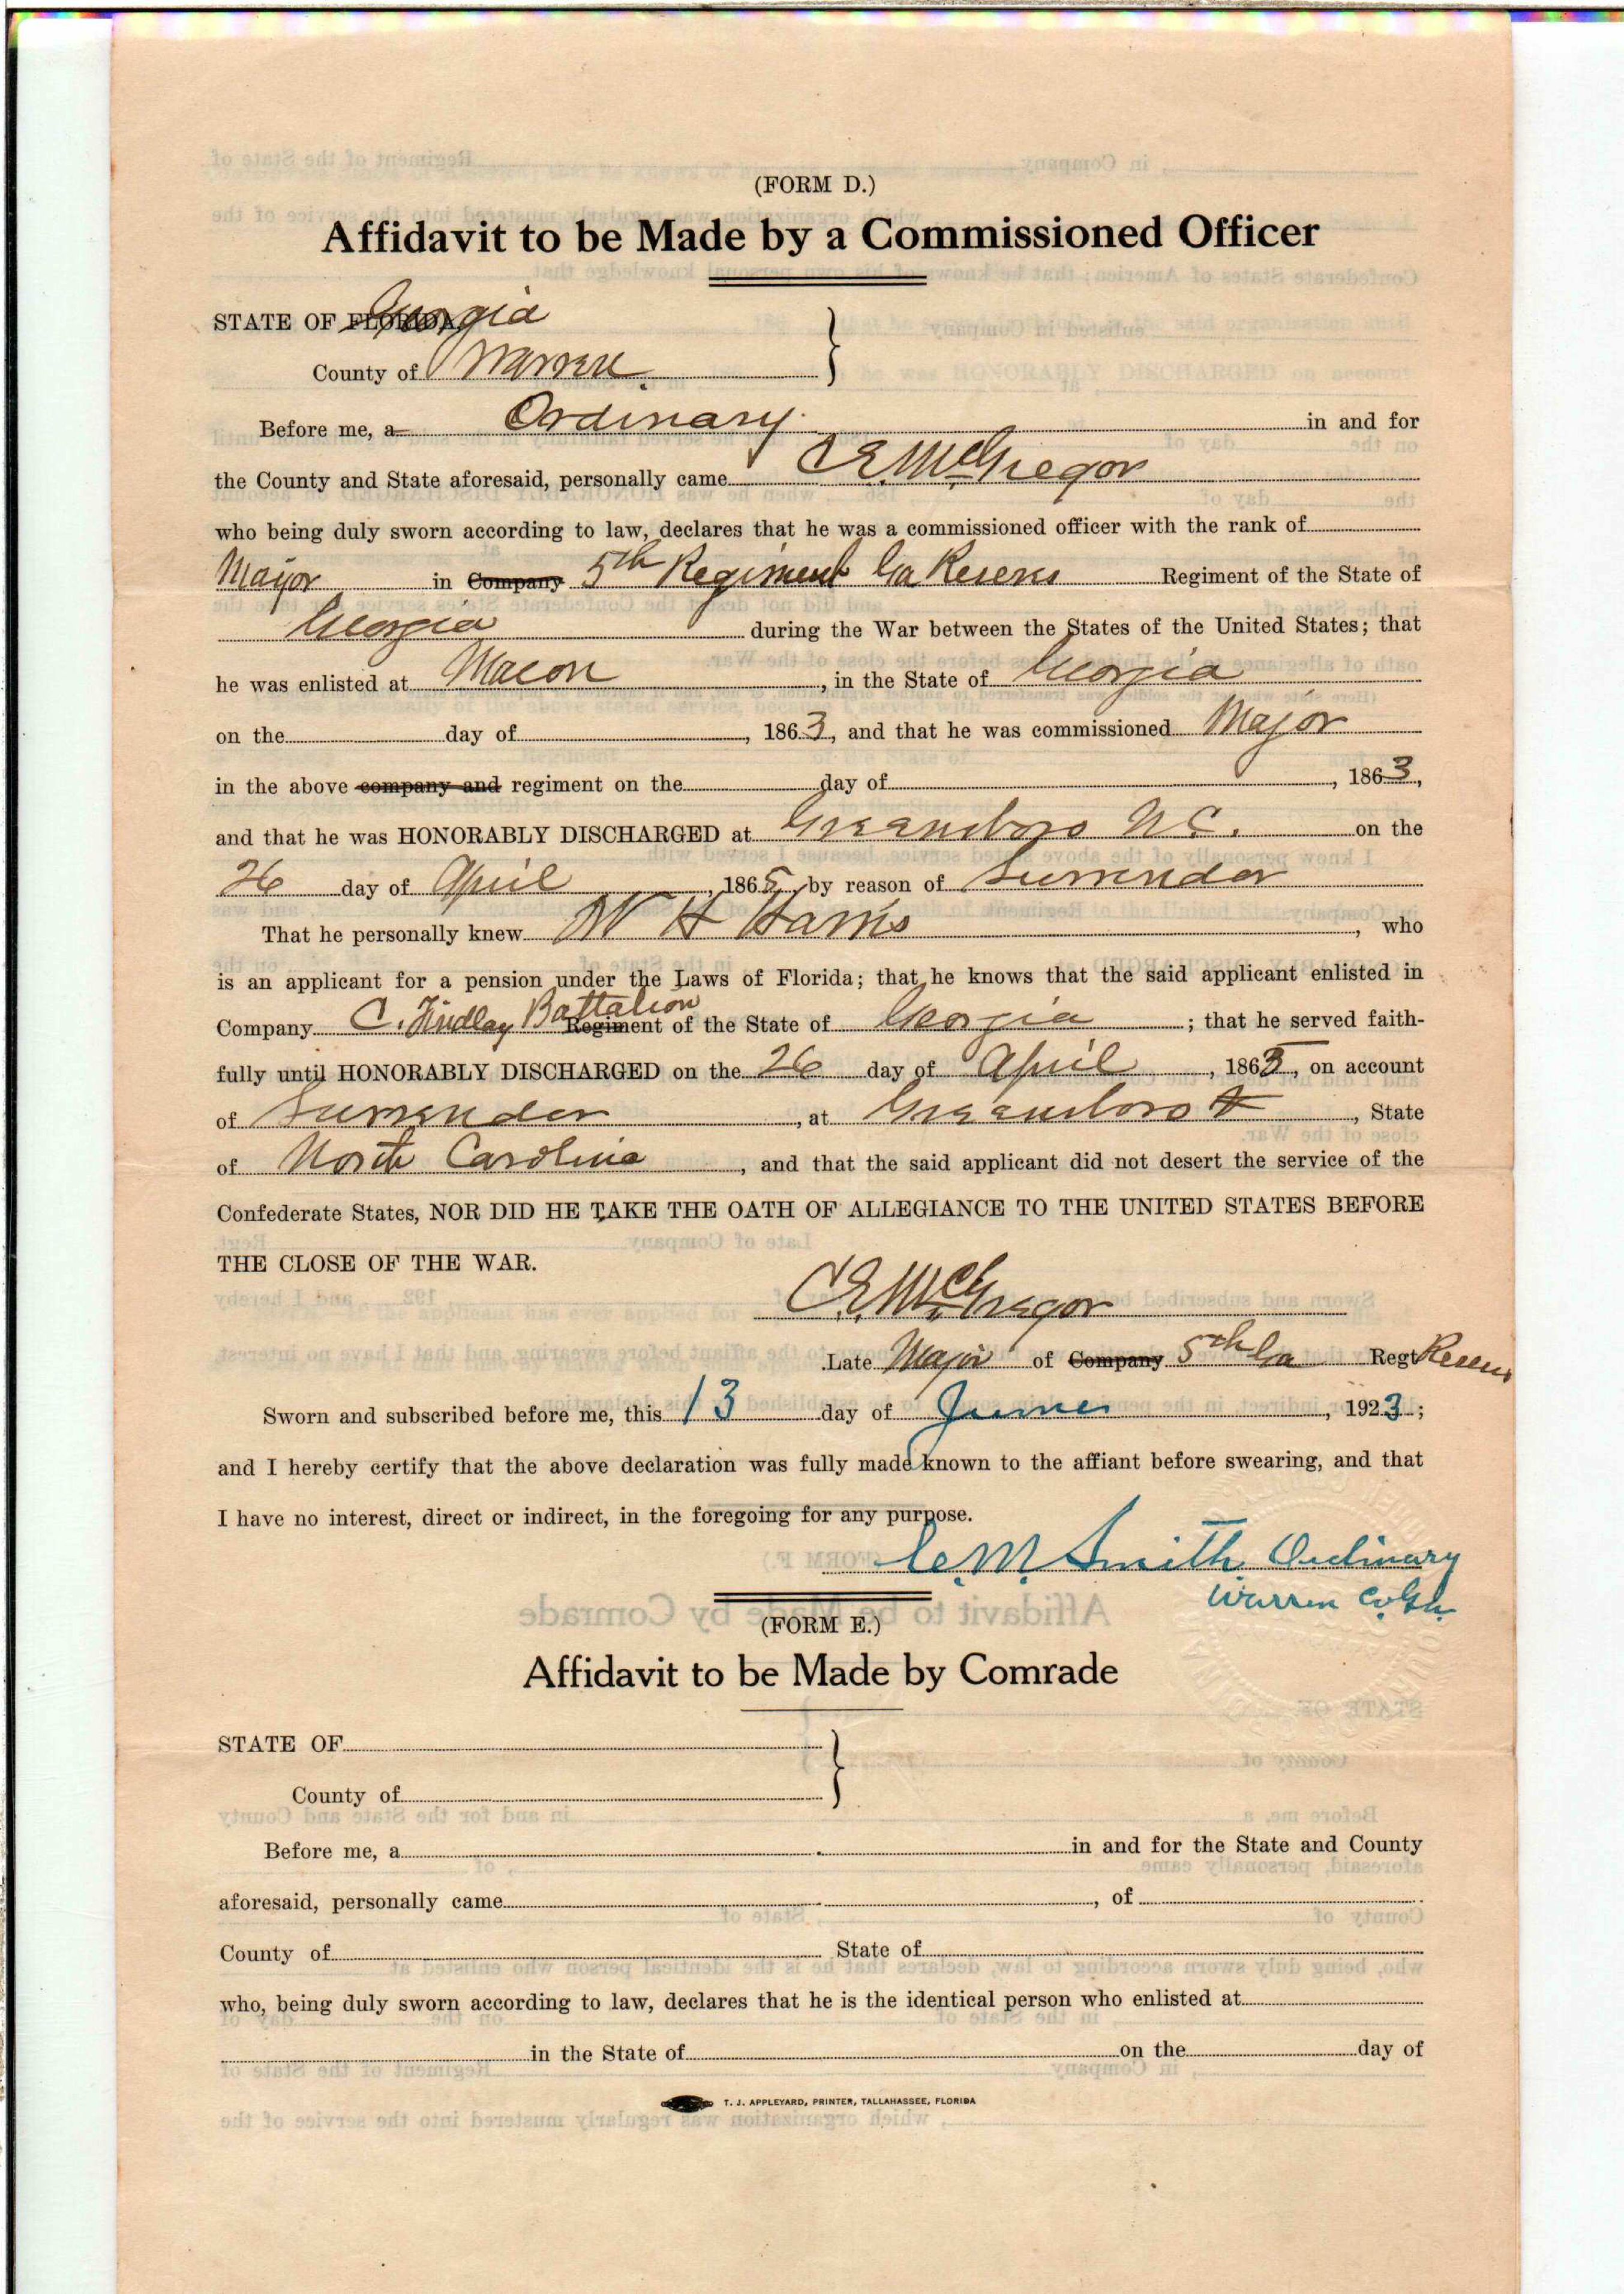 (FORM D.)
Affidavit to be Made by a Commissioned Officer
STATE OF FLORIDA Georgia
County of Warren
Before me, a Ordinary in and for
the County and State aforesaid, personally came C E McGregor
who being duly sworn according to law, declares that he was a commissioned officer with the rank of
Major in Company 5th Regiment Ga Reserves Regiment of the State of
Georgia during the War between the States of the United States; that
he was enlisted at Macon, in the State of Georgia
on the day of, 1863, and that he was commissioned Major
in the above company and regiment on the day of, 1863,
and that he was HONORABLY DISCHARGED at Greensboro N.C. on the
26 day of April, 1865, by reason of Surrender
That he personally knew W H Harris, who
is an applicant for a pension under the Laws of Florida; that he knows that the said applicant enlisted in
Company C. Findlay Battalion Regiment of the State of Georgia; that he served faith-
fully until HONORABLY DISCHARGED on the 26 day of April, 1865, on account
of Surrender, at Greensboro, State
of North Carolina, and that the said applicant did not desert the service of the
Confederate States, NOR DID HE TAKE THE OATH OF ALLEGIANCE TO THE UNITED STATES BEFORE
THE CLOSE OF THE WAR.
C.E. McGregor
Late Major of Company 5th Ga Regt Reserves
Sworn and subscribed before me, this 13 day of June, 1923;
and I hereby certify that the above declaration was fully made known to the affiant before swearing, and that
I have no interest, direct or indirect, in the foregoing for any purpose.
C.M. Smith Ordinary
Warren Co. Ga.
(FORM E.)
Affidavit to be Made by Comrade
STATE OF
County of
Before me, a in and for the State and County
aforesaid, personally came, of
County of State of
who, being duly sworn according to law, declares that he is the identical person who enlisted at
in the State of on the day of
T. J. APPLEYARD, PRINTER, TALLAHASSEE, FLORIDA